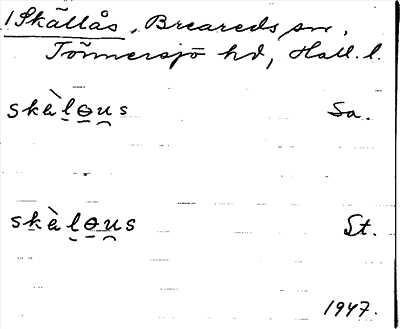 1 Skällås, Breareds sn,
Tönnersjö hd, Hall. l.
skὲl̠ɵu̯s Sa.
sk̠ὲl̠ɵu̯s St.
1947.